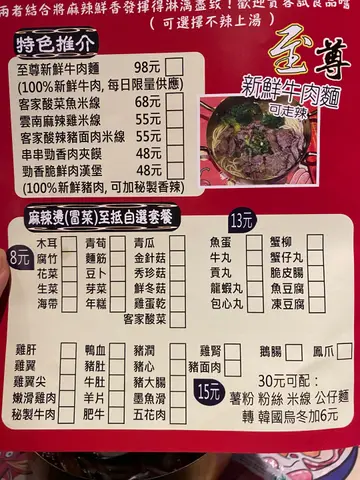 兩者結合將麻辣鮮香發揮得淋漓盡致！歡迎貴客試食品嚐
（可選擇不辣上湯）
特色推介
至尊新鮮牛肉麵 98元
(100%新鮮牛肉, 每日限量供應)
客家酸菜魚米線 68元
雲南麻辣雞米線 55元
客家酸辣豬面肉米線 55元
串串勁香肉夾饃 48元
勁香脆鮮肉漢堡 48元
(100%新鮮豬肉, 可加秘製香辣)
至尊
新鮮牛肉麵
可走辣
麻辣燙(冒菜)至抵自選套餐
8元
木耳 青筍 青瓜
腐竹 麵筋 金針菇
花菜 豆卜 秀珍菇
生菜 芽菜 鮮冬菇
海帶 年糕 雞蛋乾
客家酸菜
13元
魚蛋 蟹柳
牛丸 蟹仔丸
貢丸 脆皮腸
龍蝦丸 魚豆腐
包心丸 凍豆腐
雞肝 鴨血 豬潤 雞腎 鵝腸 鳳爪
雞翼 豬肚 豬心 豬面肉
雞翼尖 牛肚 豬大腸
嫩滑雞肉 羊肉 墨魚滑
秘製牛肉 肥牛 五花肉
15元
30元可配：
薯粉 粉絲 米線 公仔麵
轉 韓國烏冬加6元